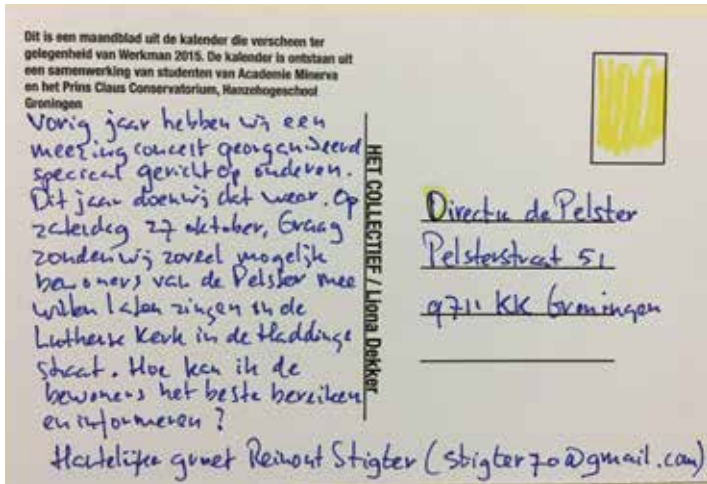 Dit is een maandblad uit de kalender die verscheen ter
gelegenheid van Werkman 2015. De kalender is ontstaan uit
een samenwerking van studenten van Academie Minerva
en het Prins Claus Conservatorium, Hanzehogeschool
Groningen
Vorig jaar hebben wij een
meezing concert georganiseerd
speciaal gericht op ouderen.
Dit jaar doen wij dat weer. Op
zaterdag 27 oktober, Graag
zouden wij zoveel mogelijk
bewoners van de Pelster mee
willen laten zingen in de
Lutherse Kerk in de Haddinge
straat. Hoe kan ik de
bewoners het beste bereiken
en informeren?
Hartelijke groet Reinout Stigter (stigter70@gmail.com)
HET COLLECTIEF / Liona Dekker
Directie de Pelster
Pelsterstraat 51
9711 KK Groningen